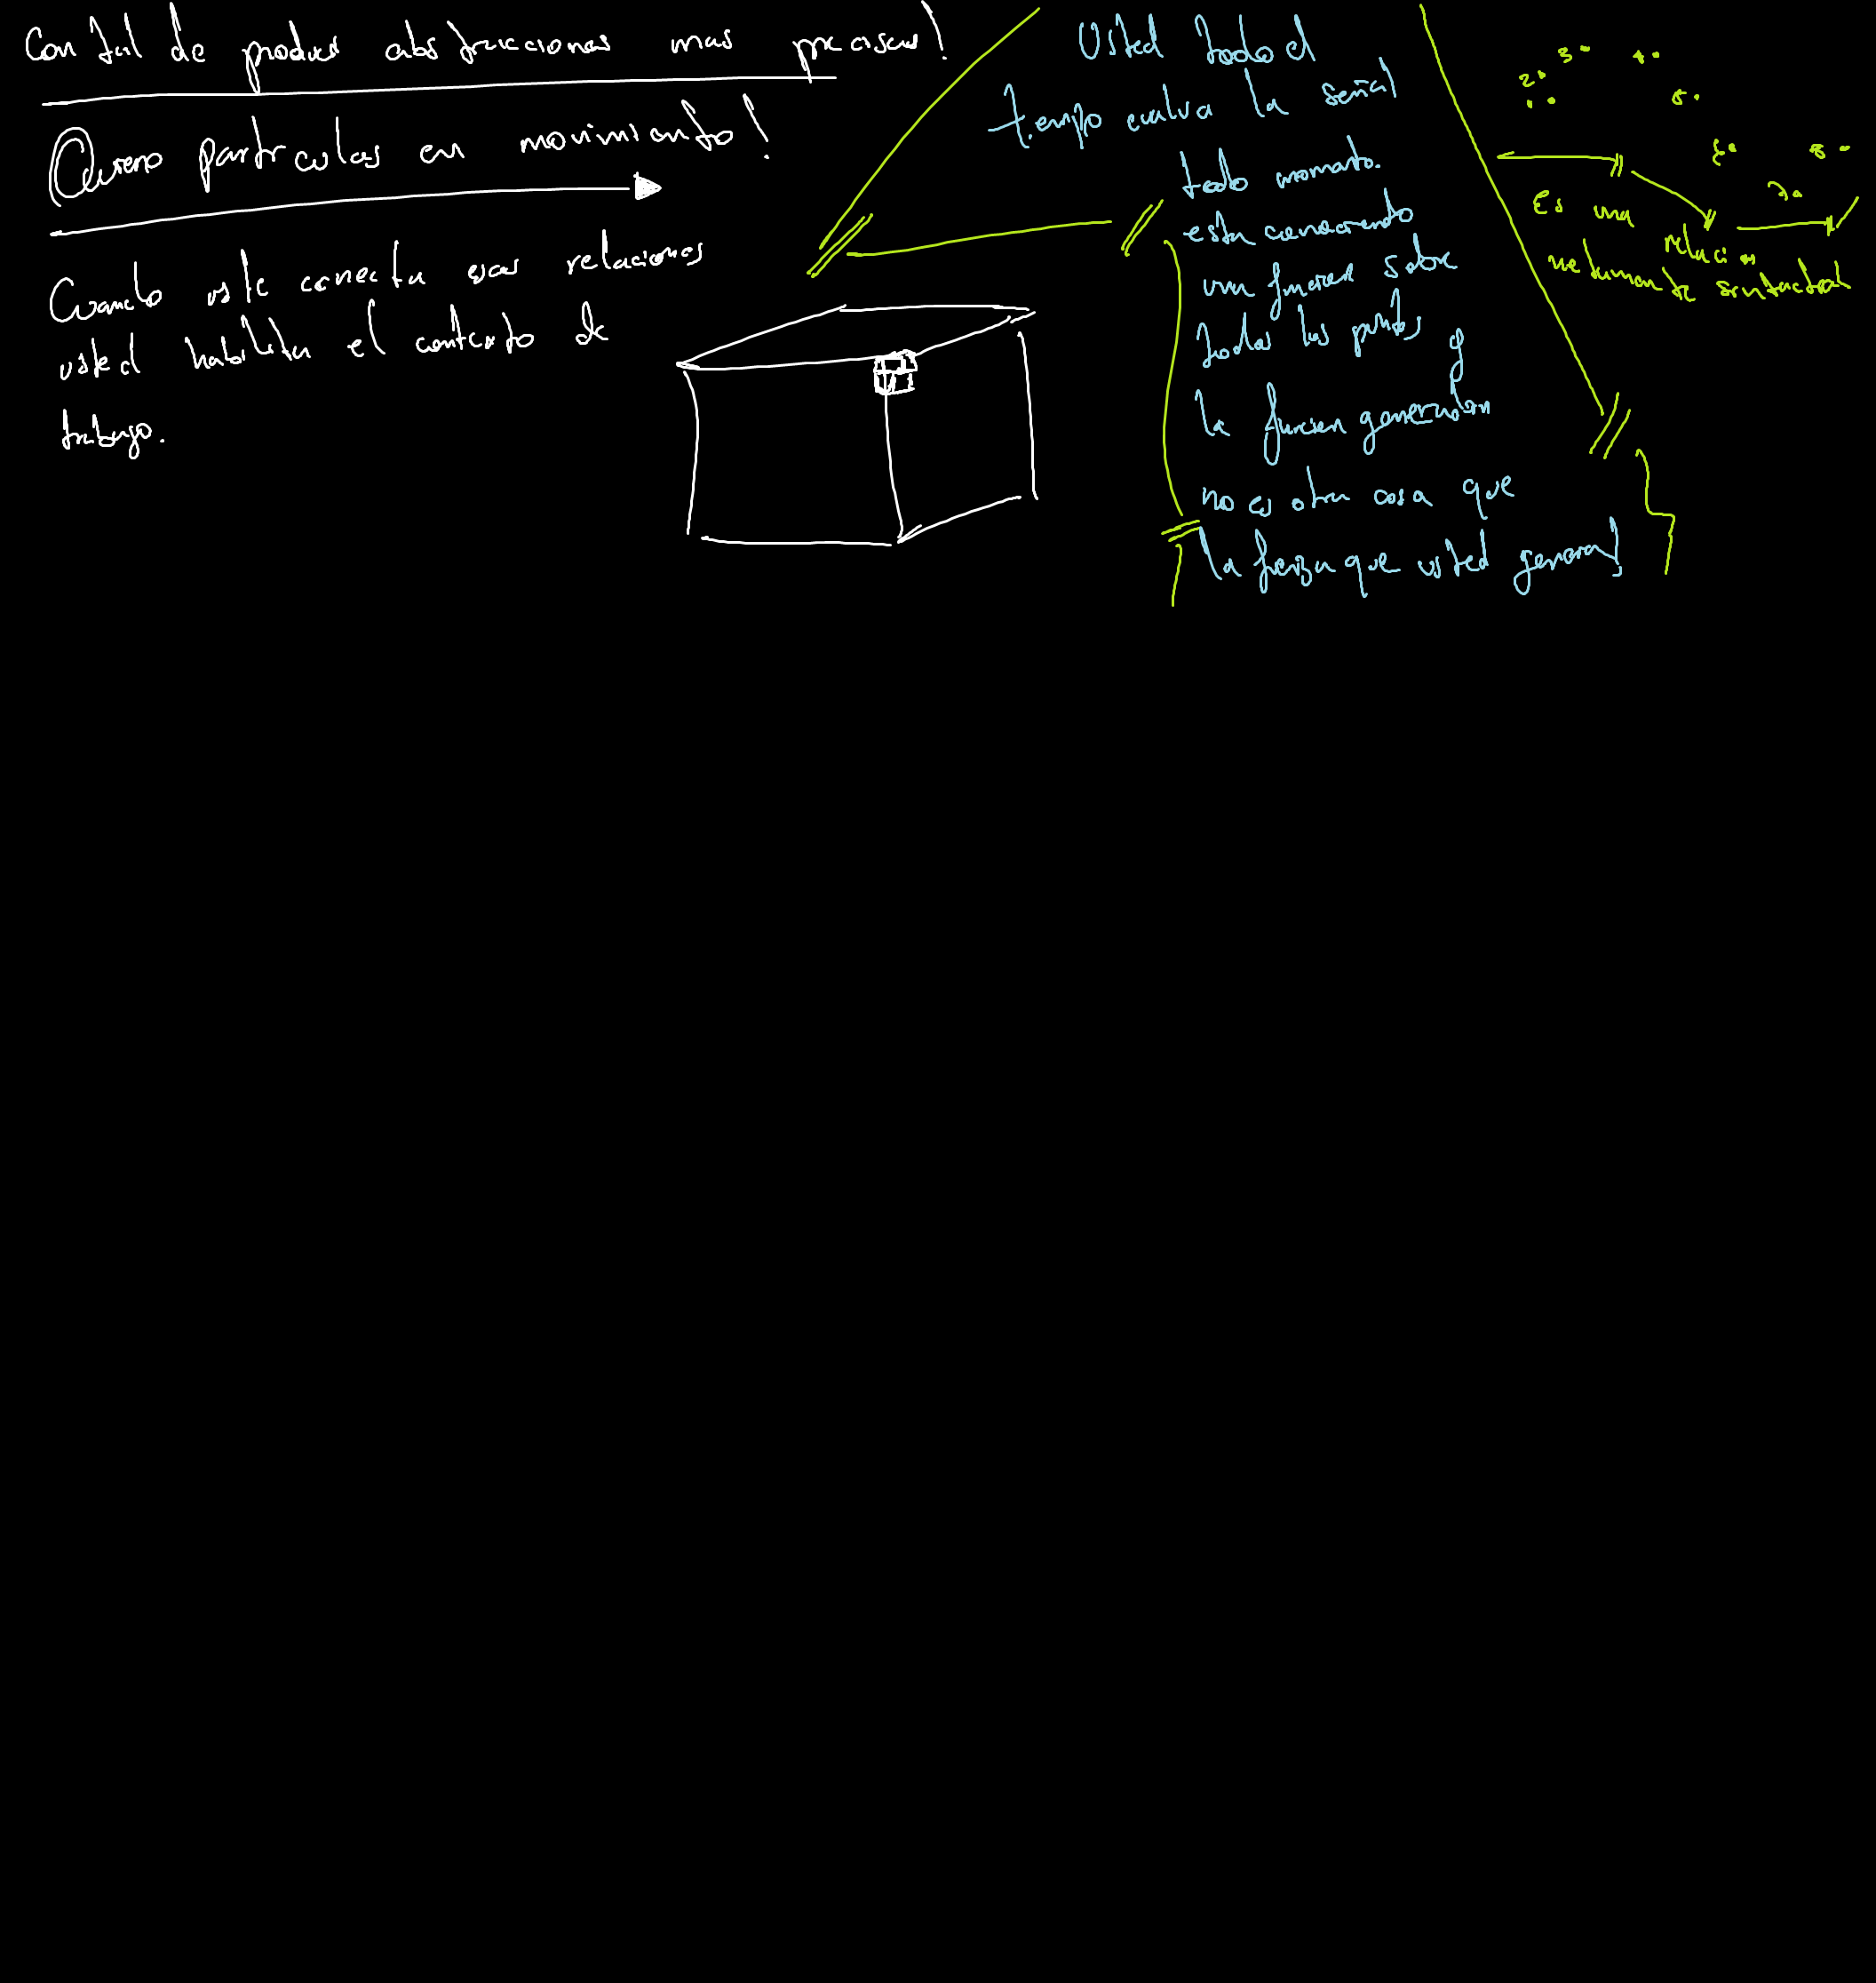 Con tal de produci abstraccionas mas precisas!
Quiero particulas en movimiento!
Cuando uste conecta esas relaciones
usted habilita el contexto de
trabajo.
Usted todo el
tiempo evalua la señal
todo momento.
esta conociendo
una funcion sobre
todos los puntos y
la funcion generador
no es otra cosa que
la fuerza que usted genera!
2 3 4
5
8
7
Es una
relacion
netamente